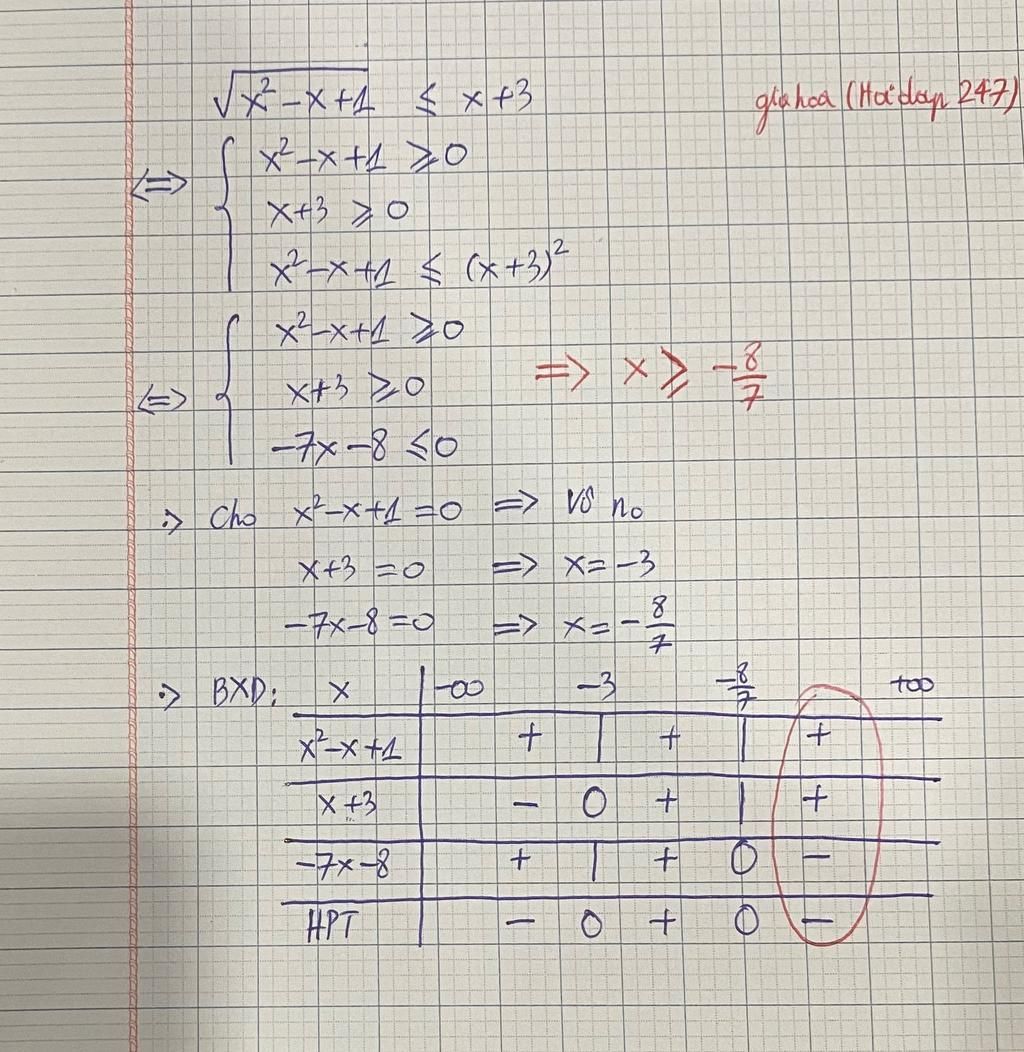 √(x² - x + 1) ≤ x + 3
giahoa (Hoidap 247)
<=> { x² - x + 1 ≥ 0
x + 3 ≥ 0
x² - x + 1 ≤ (x + 3)²
<=> { x² - x + 1 ≥ 0
x + 3 ≥ 0 => x ≥ -8/7
-7x - 8 ≤ 0
·> Cho x² - x + 1 = 0 => VS no
x + 3 = 0 => x = -3
-7x - 8 = 0 => x = -8/7
·> BXD: x | -∞ -3 -8/7 +∞
x² - x + 1 | + | + | +
x + 3 | - 0 + | +
-7x - 8 | + | + 0 -
HPT | - 0 + 0 -